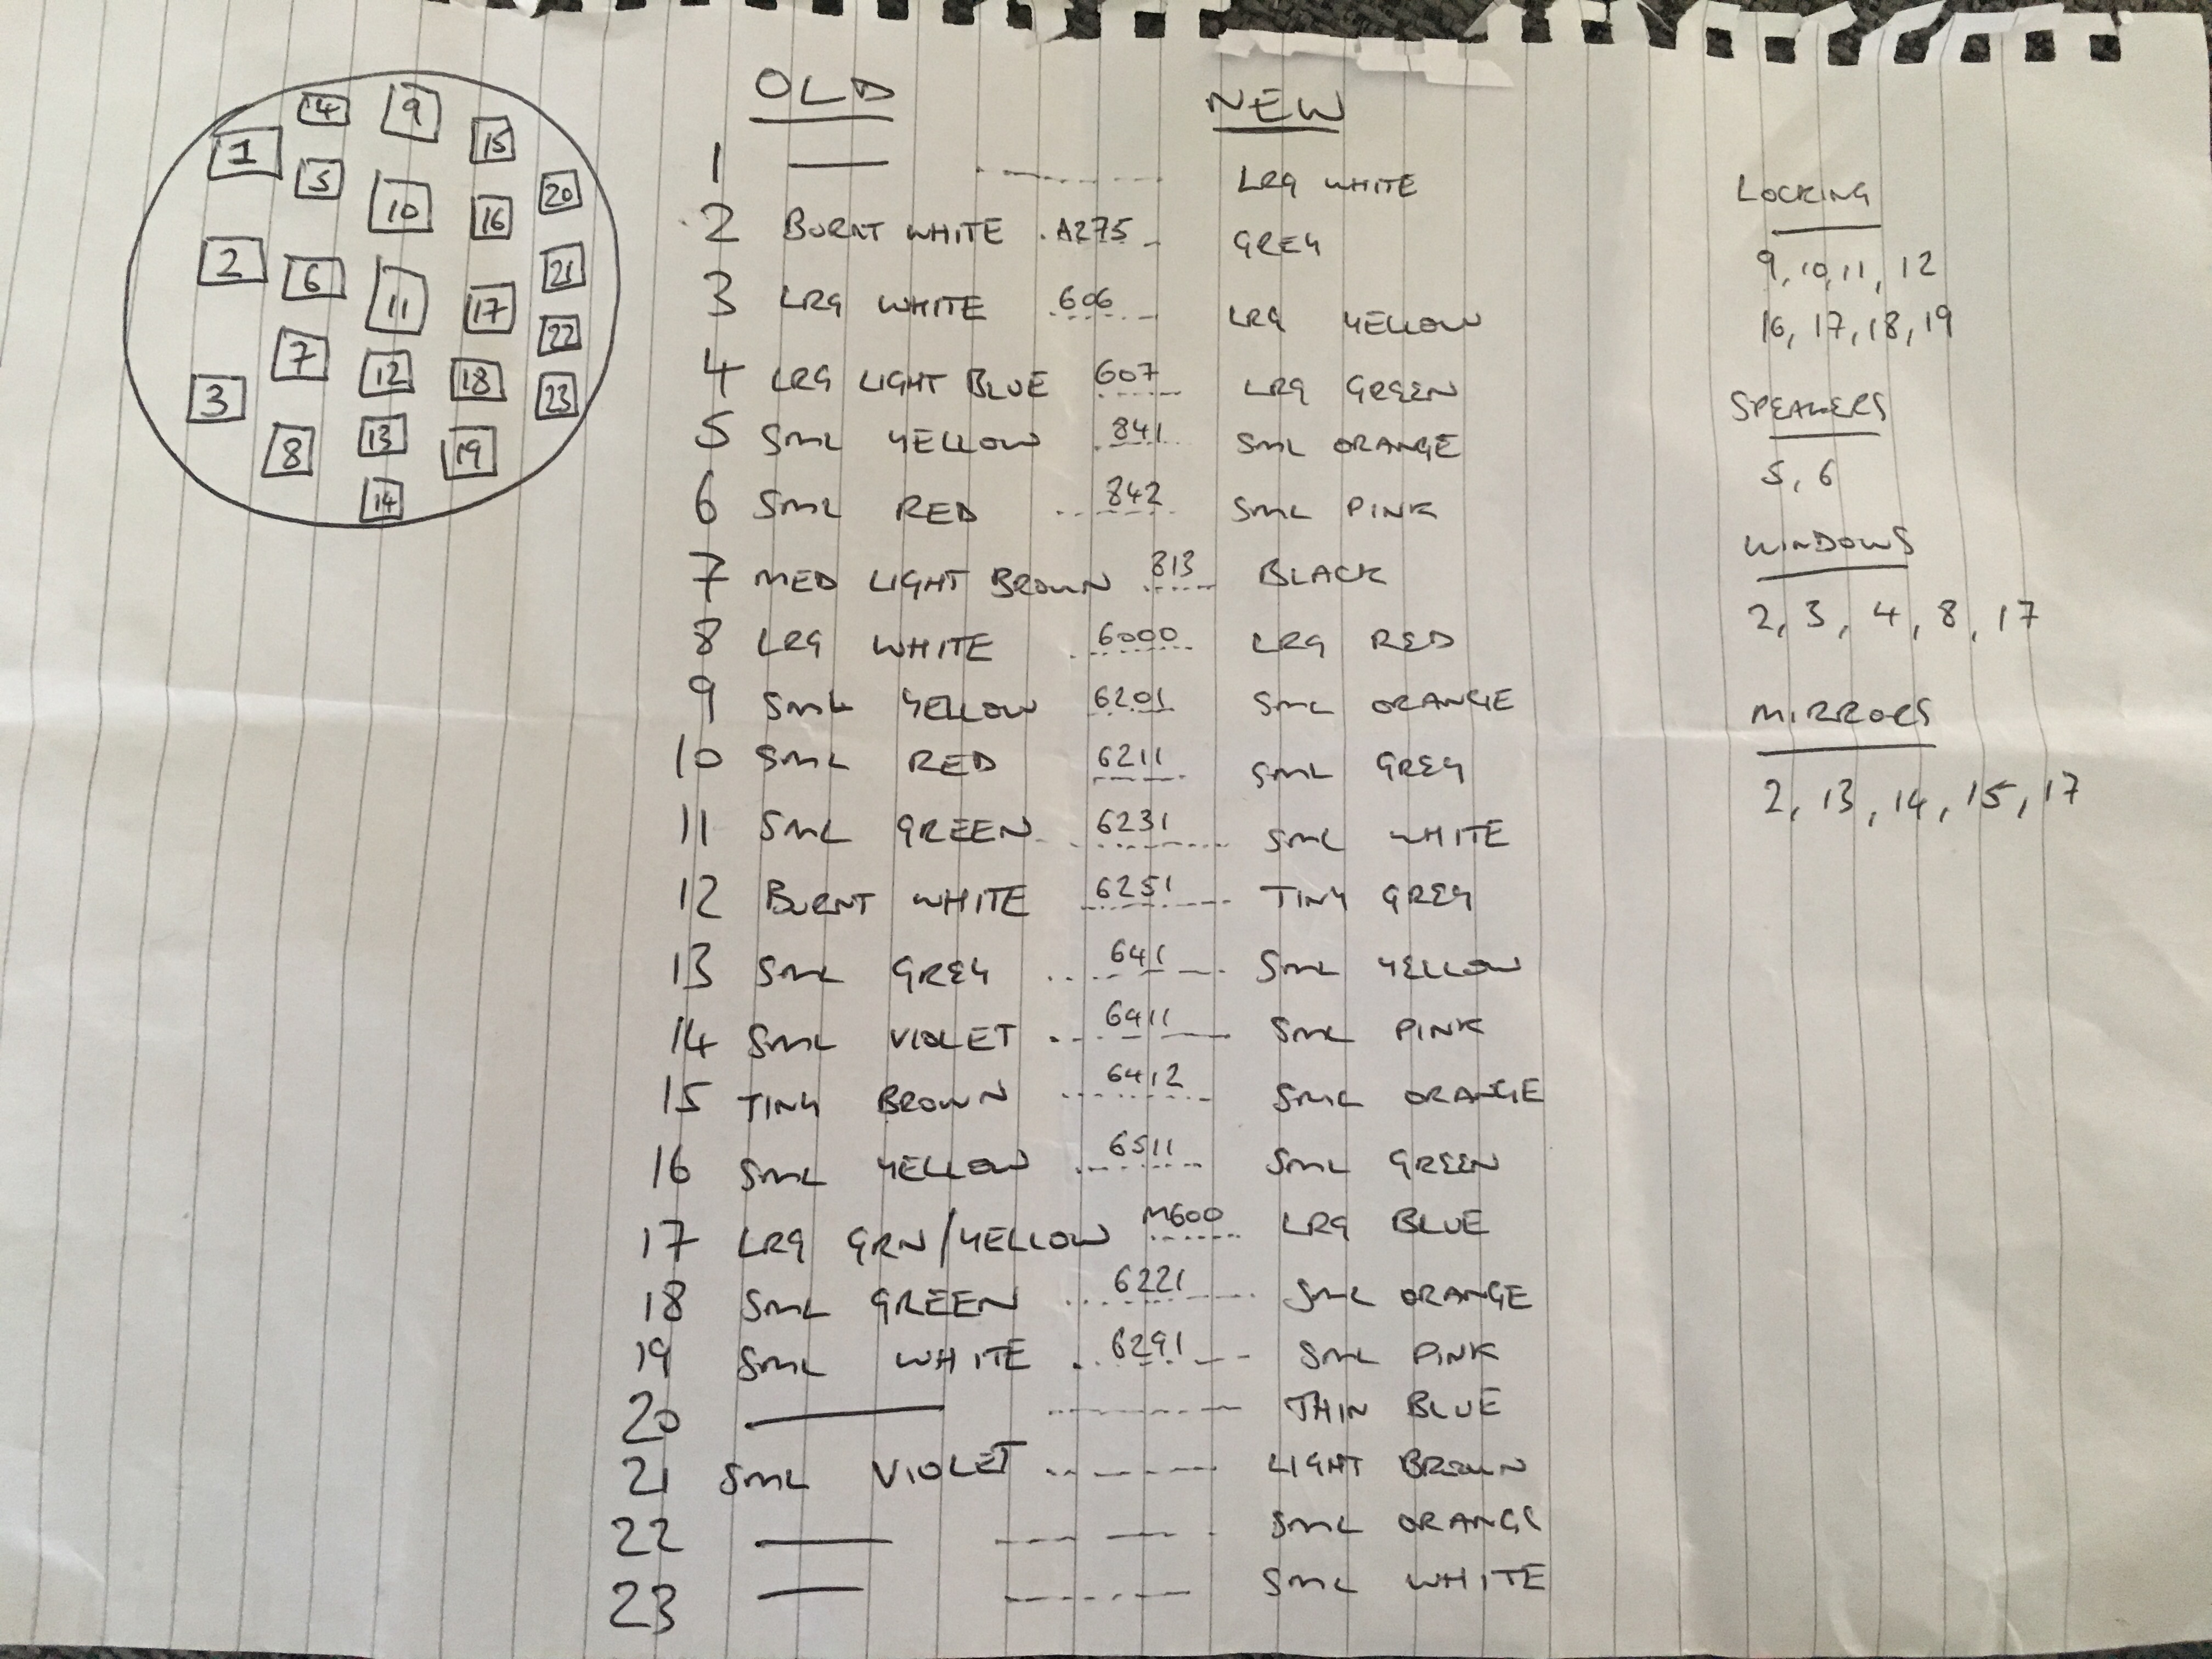 14 9
1 15
5 20
10 16
2 6 21
11 17
22
7 12 18
3 23
13
8 19
14
OLD NEW
1 — LRG WHITE
2 BURNT WHITE A275 GREY
3 LRG WHITE 606 LRG YELLOW
4 LRG LIGHT BLUE 607 LRG GREEN
5 SML YELLOW 841 SML ORANGE
6 SML RED 842 SML PINK
7 MED LIGHT BROWN 813 BLACK
8 LRG WHITE 6000 LRG RED
9 SML YELLOW 6201 SML ORANGE
10 SML RED 6211 SML GREY
11 SML GREEN 6231 SML WHITE
12 BURNT WHITE 6251 TINY GREY
13 SML GREY 641 SML YELLOW
14 SML VIOLET 6411 SML PINK
15 TINY BROWN 6412 SML ORANGE
16 SML YELLOW 6511 SML GREEN
17 LRG GRN/YELLOW M600 LRG BLUE
18 SML GREEN 6221 SML ORANGE
19 SML WHITE 6291 SML PINK
20 — THIN BLUE
21 SML VIOLET LIGHT BROWN
22 — SML ORANGE
23 — SML WHITE
LOCKING
9, 10, 11, 12
16, 17, 18, 19
SPEAKERS
5, 6
WINDOWS
2, 3, 4, 8, 17
MIRRORS
2, 13, 14, 15, 17